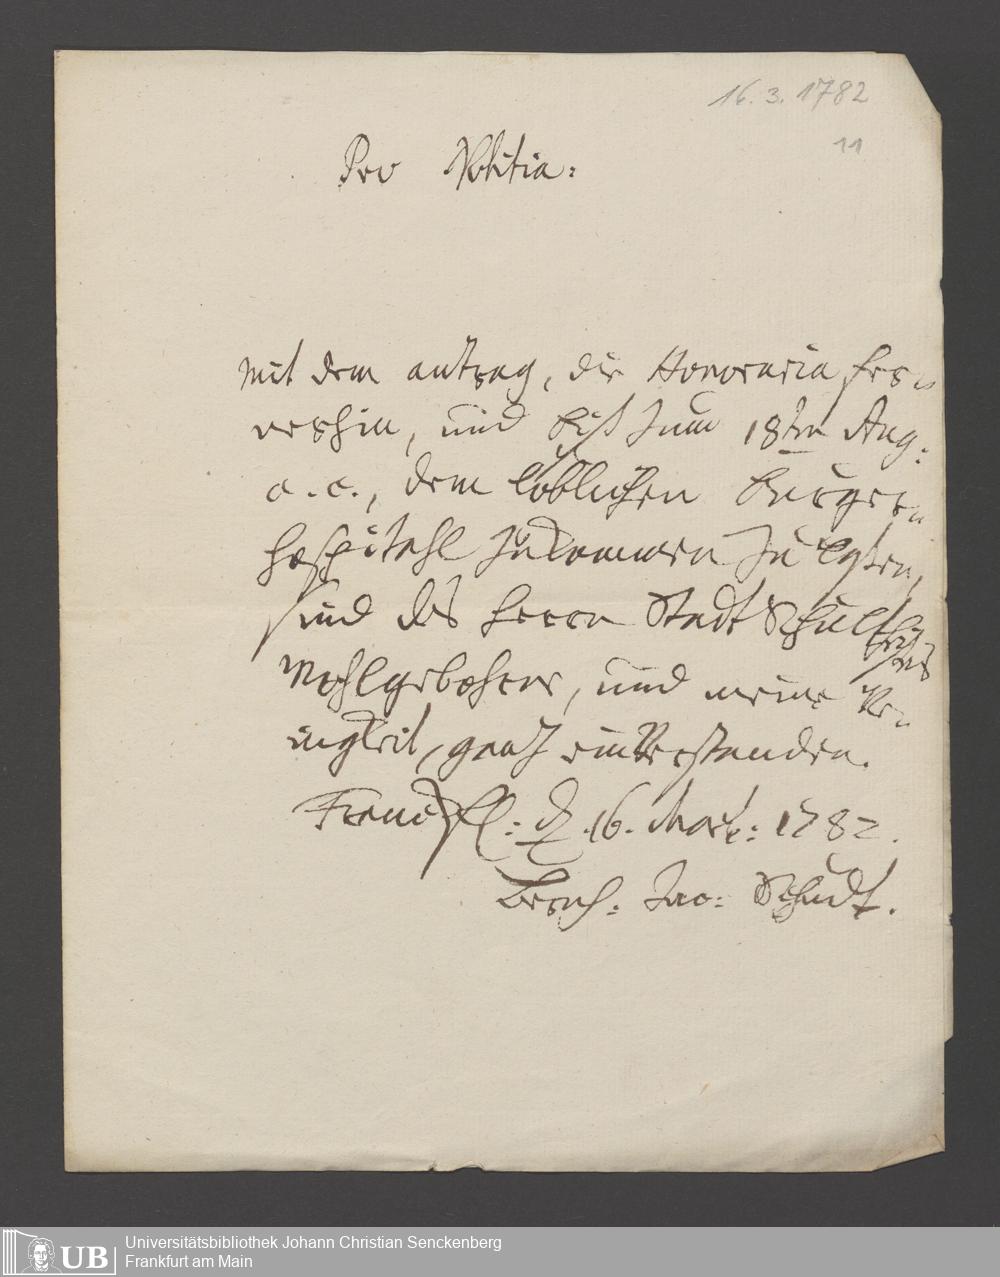 16. 3. 1782
11
Pro Notitia:
Mit dem antrag, die Honoraria fer-
nerhin, und biß zum 18ten Aug:
a. c., dem löblichen Burger-
hospitahl zukommen zu laßen,
sind des Herrn Stadt Schultheißen
Wohlgebohrne, und meine We-
nigkeit, gantz einverstanden.
Franckf: d. 16. Mart: 1782.
Jac: Schudt.
UB Universitätsbibliothek Johann Christian Senckenberg
Frankfurt am Main